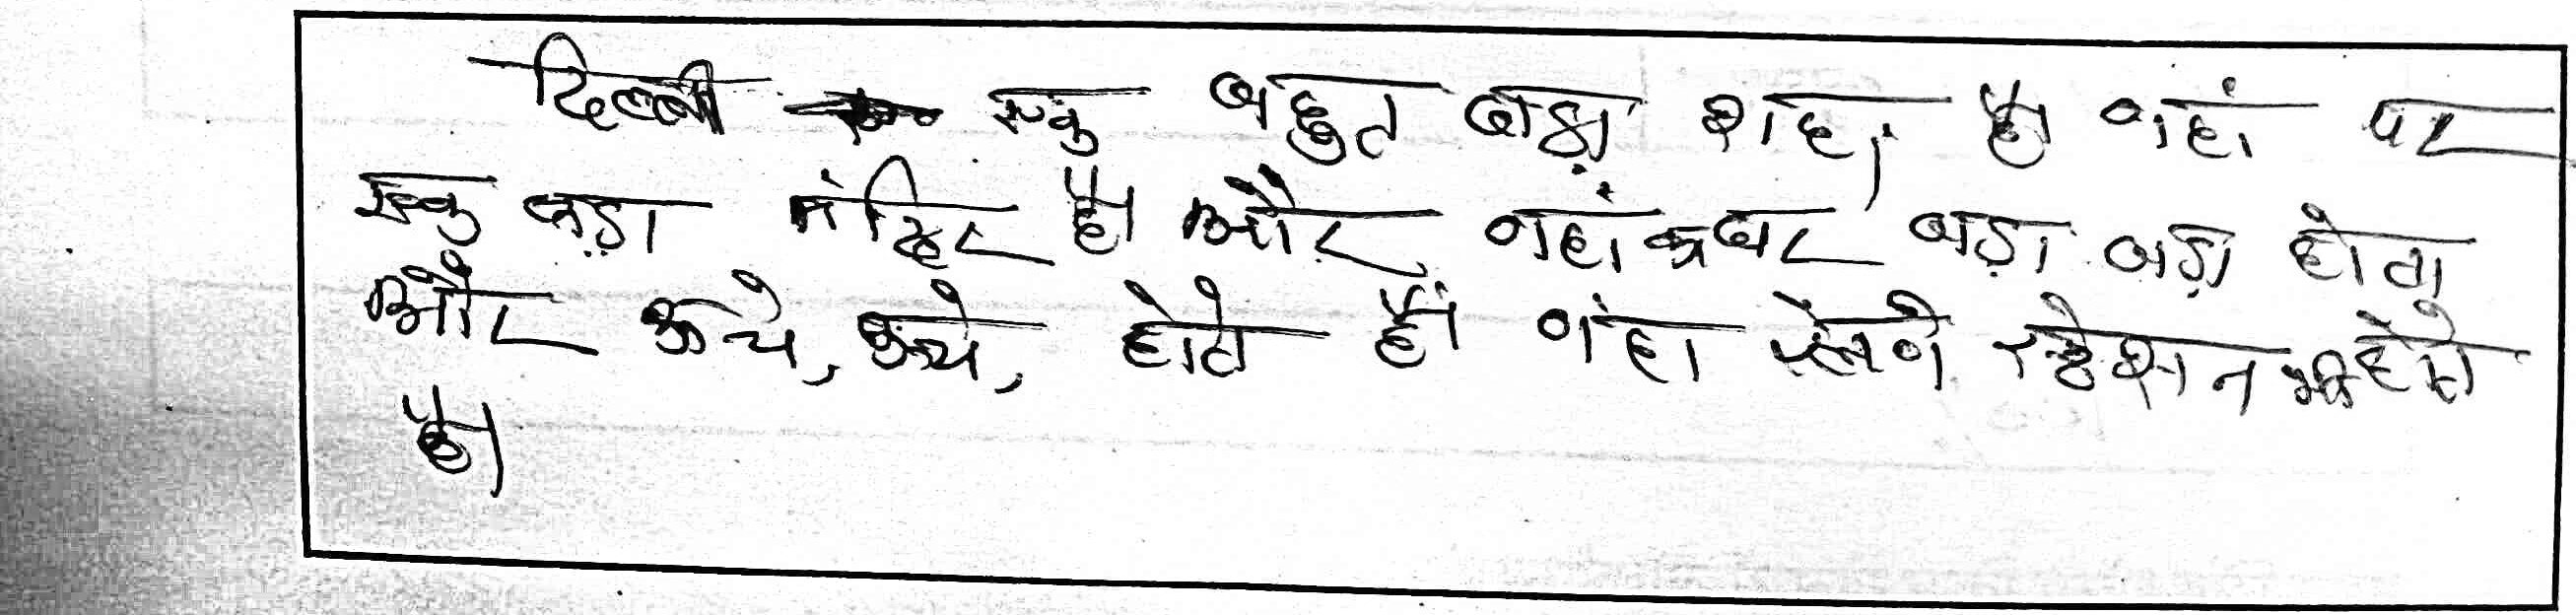 दिल्ली एक बहुत बड़ा शहर है वहां पर
एक बड़ा मंदिर है और वहां घर बड़ा बड़ा होता
और ऊचे, ऊचे, होते हैं वंहा रेलवे स्टेशन भी होते
है।